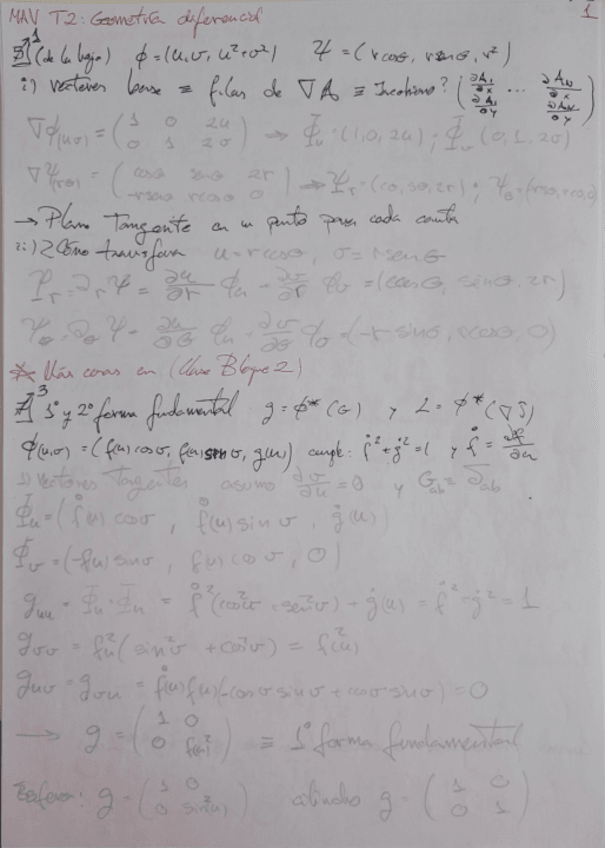 MAV T2: Geometría diferencial 1
Ej 1 (de la hoja) ϕ=(u,v, u²+v²) Ψ=(r cosθ, r senθ, r²)
i) vectores base ≡ filas de ∇A ≡ Jacobiano? (∂A₁/∂x ... ∂A_N/∂x ; ∂A₁/∂y ∂A_N/∂y)
∇ϕ(u,v) = (1 0 2u ; 0 1 2v) → Φ_u:(1,0,2u); Φ_v (0,1,2v)
∇Ψ(r,θ) = (cosθ sinθ 2r ; -r sinθ r cosθ 0) → Ψ_r=(cθ,sθ,2r); Ψ_θ=(-rsθ,rcθ,0)
→ Plano Tangente en un punto para cada
ii) ¿Cómo transforma u=r cosθ, v=r sen θ
Ψ_r=∂_rΨ = ∂u/∂r ϕ_u + ∂v/∂r ϕ_v =(cosθ, sinθ, 2r)
Ψ_θ=∂_θΨ = ∂u/∂θ ϕ_u + ∂v/∂θ ϕ_v =(-r sinθ, r cosθ, 0)
* Más cosas en (Clase Bloque 2)
Ej 3 1ª y 2ª forma fundamental g=ϕ*(G) y L=ϕ*(∇S)
ϕ(u,v) = (f(u) cos v, f(u) sin v, g(u)) cumple: ḟ²+ġ²=1 y ḟ=∂f/∂u
1) Vectores Tangentes asumo ∂v/∂u=0 y G_ab=δ_ab
Φ_u=(ḟ(u) cos v, ḟ(u) sin v, ġ(u))
Φ_v=(-f(u) sin v, f(u) cos v, 0)
g_uu = Φ_u·Φ_u = ḟ²(cos²v + sen²v) + ġ(u) = ḟ²+ġ²=1
g_vv = f²u(sin²v + cos²v) = f²(u)
g_uv=g_vu = ḟ(u)f(u)(-cos v sin v + cos v sin v)=0
→ g=(1 0 ; 0 f²(u)) ≡ 1ª forma fundamental
Esfera: g=(1 0 ; 0 sin²(u)) cilindro g=(1 0 ; 0 1)